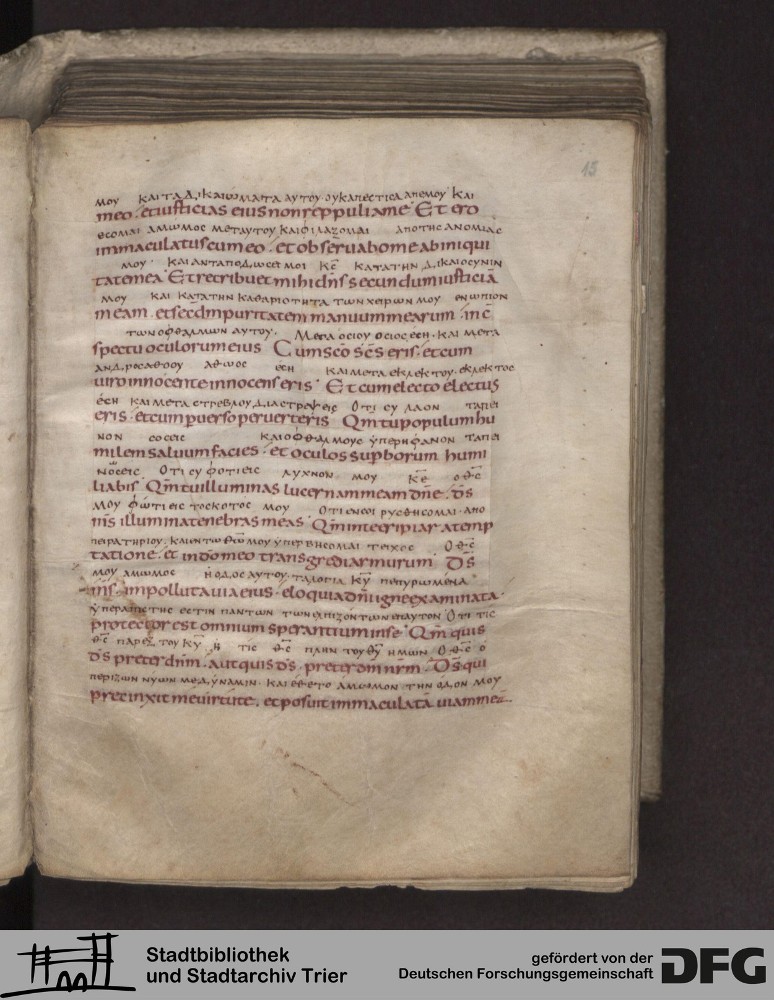 15
μου και τα δικαιωματα αυτου ουκ απεστισα απ εμου Και
meo · et iusticias eius non reppuli a me Et ero
εσομαι αμωμος μετ αυτου και φιλαξομαι απο της ανομιας
immaculatus cum eo · et observabo me ab iniqui
μου · και ανταποδωσει μοι κ̅ε̅ κατα την δικαιοσυνιν
tate mea Et retribuet mihi dn̅s secundum iusticiā
μου και κατα την καθαριοτητα των χειρων μου ενωπιον
meam · et sec̅d̅m puritatem manuum mearum · in c̅
των οφθαλμων αυτου · Μετα οσιου οσιος εση · και μετα
spectu oculorum eius Cum sc̅o sc̅s eris · et cum
ανδρος αθοου αθωος εση και μετα εκλεκτου · εκλεκτος
viro innocente innocens eris Et cum electo electus
εση και μετα στρεβλου διαστρεψεις Οτι συ λαον ταπει
eris · et cum pverso perverteris Qm̅ tu populum hu
νον σοσεις και οφθαλμους υπερηφανον ταπει
milem salvum facies · et oculos supborum humi
νοσεις Οτι συ φοτιεις λυχνον μου κ̅ε̅ ο θ̅ς̅
liabis Qm̅ tu illuminas lucernam meam dn̅e · d̅s̅
μου φωτιεις το σκοτος μου Οτι εν σοι ρυσθησομαι · απο
m̅s illumina tenebras meas Qm̅ in te eripiar a temp
πειρατηριου · και εν τω θω̅ μου υπερβησομαι τειχος Ο θ̅ς̅
tatione · et in do̅ meo transgrediar murum D̅s̅
μου αμωμος η οδος αυτου · τα λογια κ̅υ̅ πεπυρωμενα
m̅s · impolluta via eius · eloquia dn̅i igne examinata ·
υπερασπιστης εστιν παντων των ελπιζοντων επ αυτον Οτι τις
protector est omnium sperantium in se Qm̅ quis
θ̅ς̅ παρεξ του κ̅υ̅ η τις θ̅ς̅ πλην του θ̅υ̅ ημων Ο θ̅ς̅ ο
d̅s̅ preter dn̅m · aut quis d̅s̅ · preter dm̅ nr̅m · D̅s̅ qui
περιζωννυων με δυναμιν · και εθετο αμωμον την οδον μου
precinxit me virtute · et posuit immaculatā viam meā
Stadtbibliothek
und Stadtarchiv Trier
gefördert von der
Deutschen Forschungsgemeinschaft
DFG